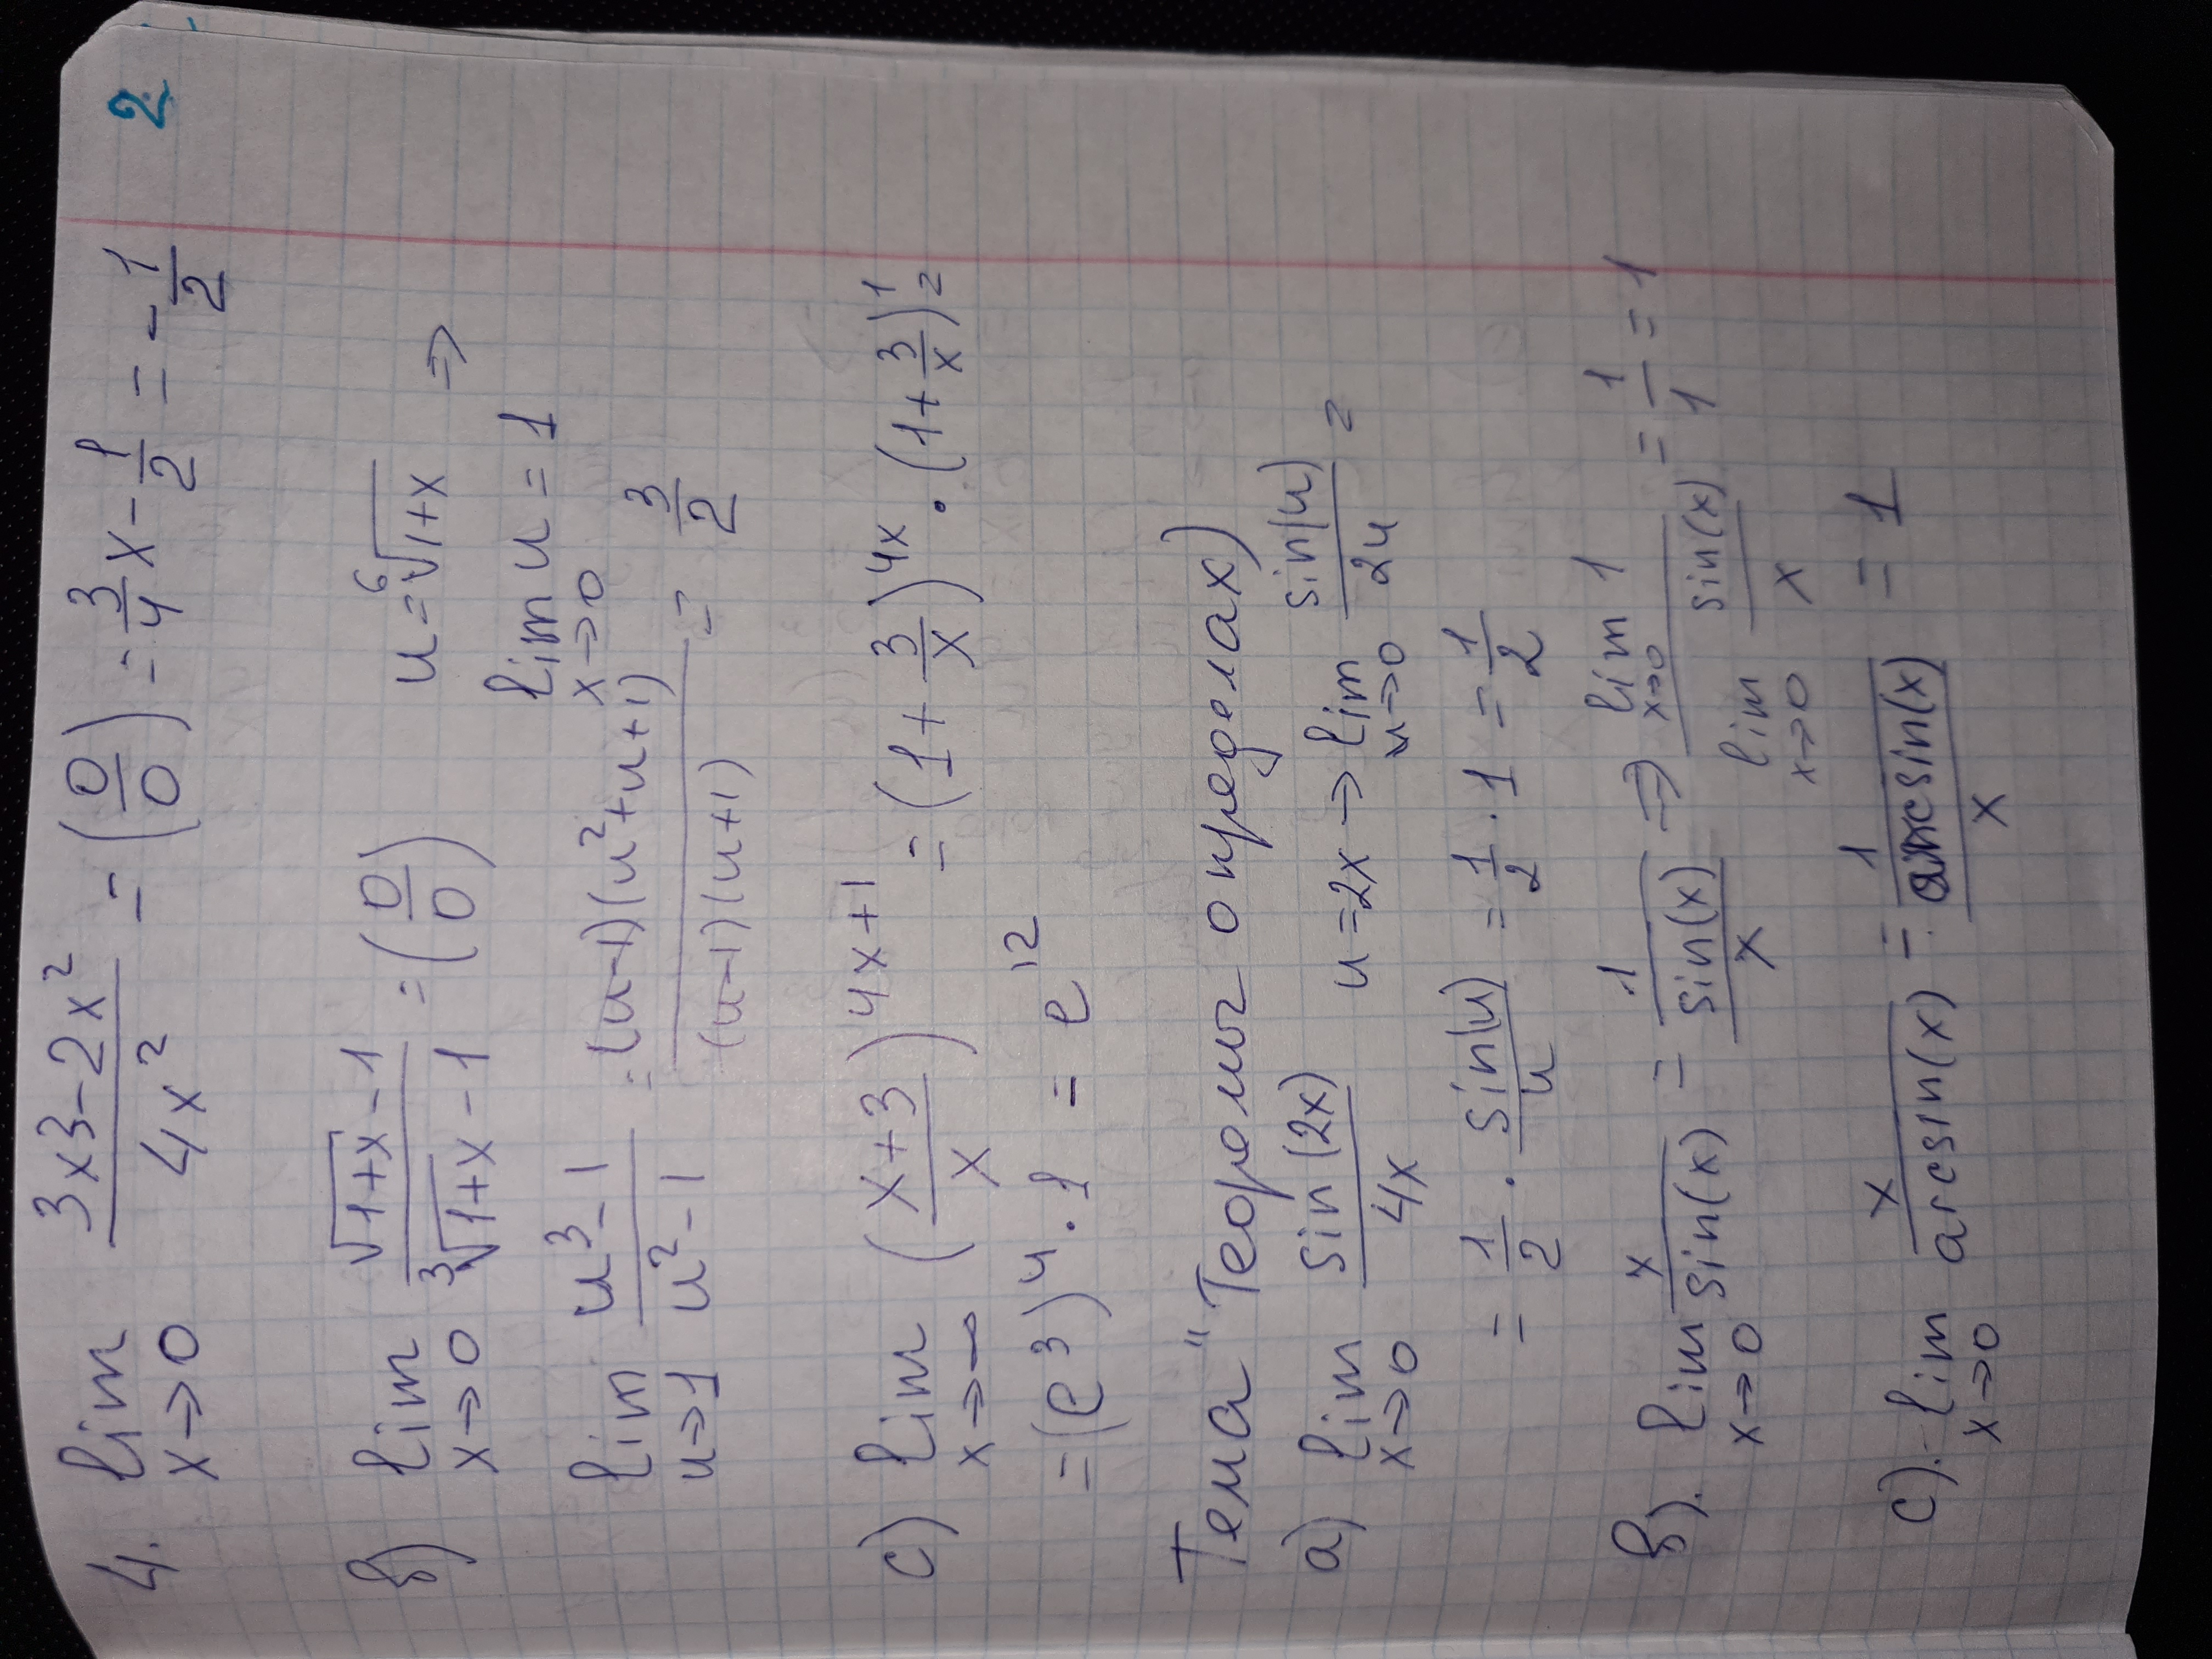 4. lim x→0 (3x3-2x²)/(4x²) = (0/0) = 3/4 x - 1/2 = -1/2 2
b) lim x→0 (√(1+x) - 1)/(³√(1+x) - 1) = (0/0) u = ⁶√(1+x) ⇒
lim x→0 u = 1
lim u→1 (u³-1)/(u²-1) = ((u-1)(u²+u+1))/((u-1)(u+1)) = 3/2
c) lim x→∞ ((x+3)/x)^(4x+1) = (1+3/x)^(4x) · (1+3/x)^1 =
= (e³)⁴ · 1 = e¹²
Тема "Теоремы о пределах)
a) lim x→0 sin(2x)/4x u=2x → lim u→0 sin(u)/2u =
= 1/2 · sin(u)/u = 1/2 · 1 = 1/2
b). lim x→0 x/sin(x) = 1/(sin(x)/x) ⇒ (lim x→0 1)/(lim x→0 sin(x)/x) = 1/1 = 1
c). lim x→0 x/arcsin(x) = 1/(arcsin(x)/x) = 1